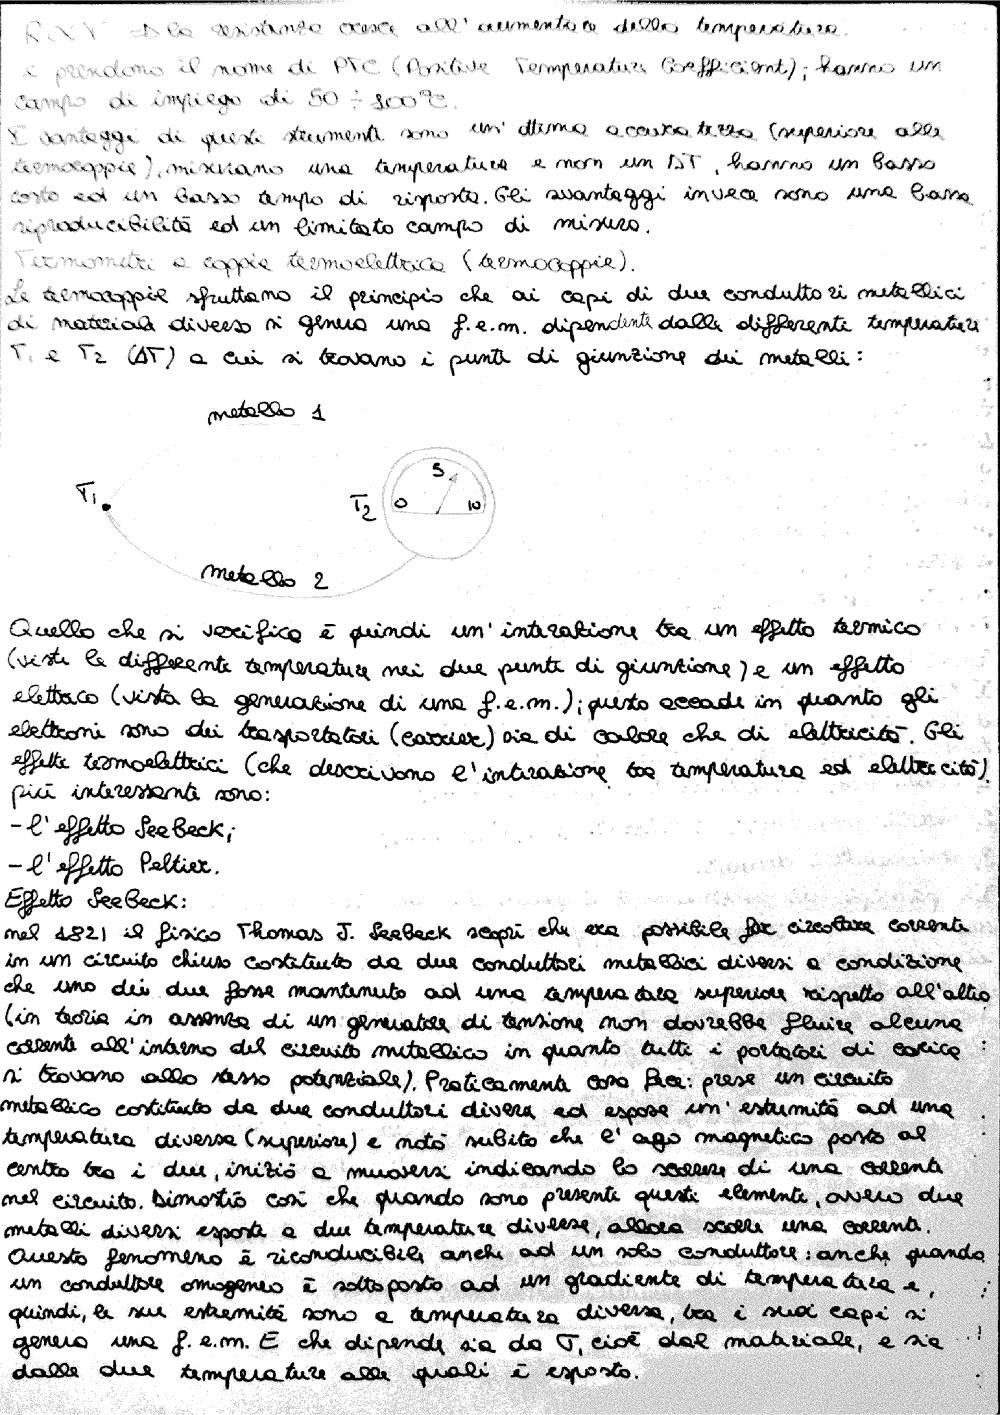 la resistenza cresce all'aumentare della temperatura.
e prendono il nome di PTC (Positive Temperature Coefficient); hanno un
campo di impiego di 50 ÷ 100°C.
I vantaggi di questi strumenti sono un'ottima accuratezza (superiore alle
termocoppie), misurano una temperatura e non un ΔT, hanno un basso
costo ed un basso tempo di risposta. Gli svantaggi invece sono una bassa
riproducibilità ed un limitato campo di misura.
Termometri a coppia termoelettrica (termocoppie).
Le termocoppie sfruttano il principio che ai capi di due conduttori metallici
di materiale diverso si genera una f.e.m. dipendente dalle differenti temperature
T1 e T2 (ΔT) a cui si trovano i punti di giunzione dei metalli:
metallo 1
T1
T2
0 5 10
metallo 2
Quello che si verifica è quindi un'interazione tra un effetto termico
(viste le differenti temperature nei due punti di giunzione) e un effetto
elettrico (vista la generazione di una f.e.m.); questo accade in quanto gli
elettroni sono dei trasportatori (carrier) sia di calore che di elettricità. Gli
effetti termoelettrici (che descrivono l'interazione tra temperatura ed elettricità)
più interessanti sono:
- l'effetto Seebeck;
- l'effetto Peltier.
Effetto Seebeck:
nel 1821 il fisico Thomas J. Seebeck scoprì che era possibile far circolare corrente
in un circuito chiuso costituito da due conduttori metallici diversi a condizione
che uno dei due fosse mantenuto ad una temperatura superiore rispetto all'altro
(in teoria in assenza di un generatore di tensione non dovrebbe fluire alcuna
corrente all'interno del circuito metallico in quanto tutti i portatori di carica
si trovano allo stesso potenziale). Praticamente cosa fece: prese un circuito
metallico costituito da due conduttori diversi ed espose un'estremità ad una
temperatura diversa (superiore) e notò subito che l'ago magnetico posto al
centro tra i due, iniziò a muoversi indicando lo scorrere di una corrente
nel circuito. Dimostrò così che quando sono presenti questi elementi, ovvero due
metalli diversi esposti a due temperature diverse, allora scorre una corrente.
Questo fenomeno è riconducibile anche ad un solo conduttore: anche quando
un conduttore omogeneo è sottoposto ad un gradiente di temperatura e,
quindi, le sue estremità sono a temperatura diversa, tra i suoi capi si
genera una f.e.m. E che dipende sia da σ, cioè dal materiale, e sia
dalle due temperature alle quali è esposto.